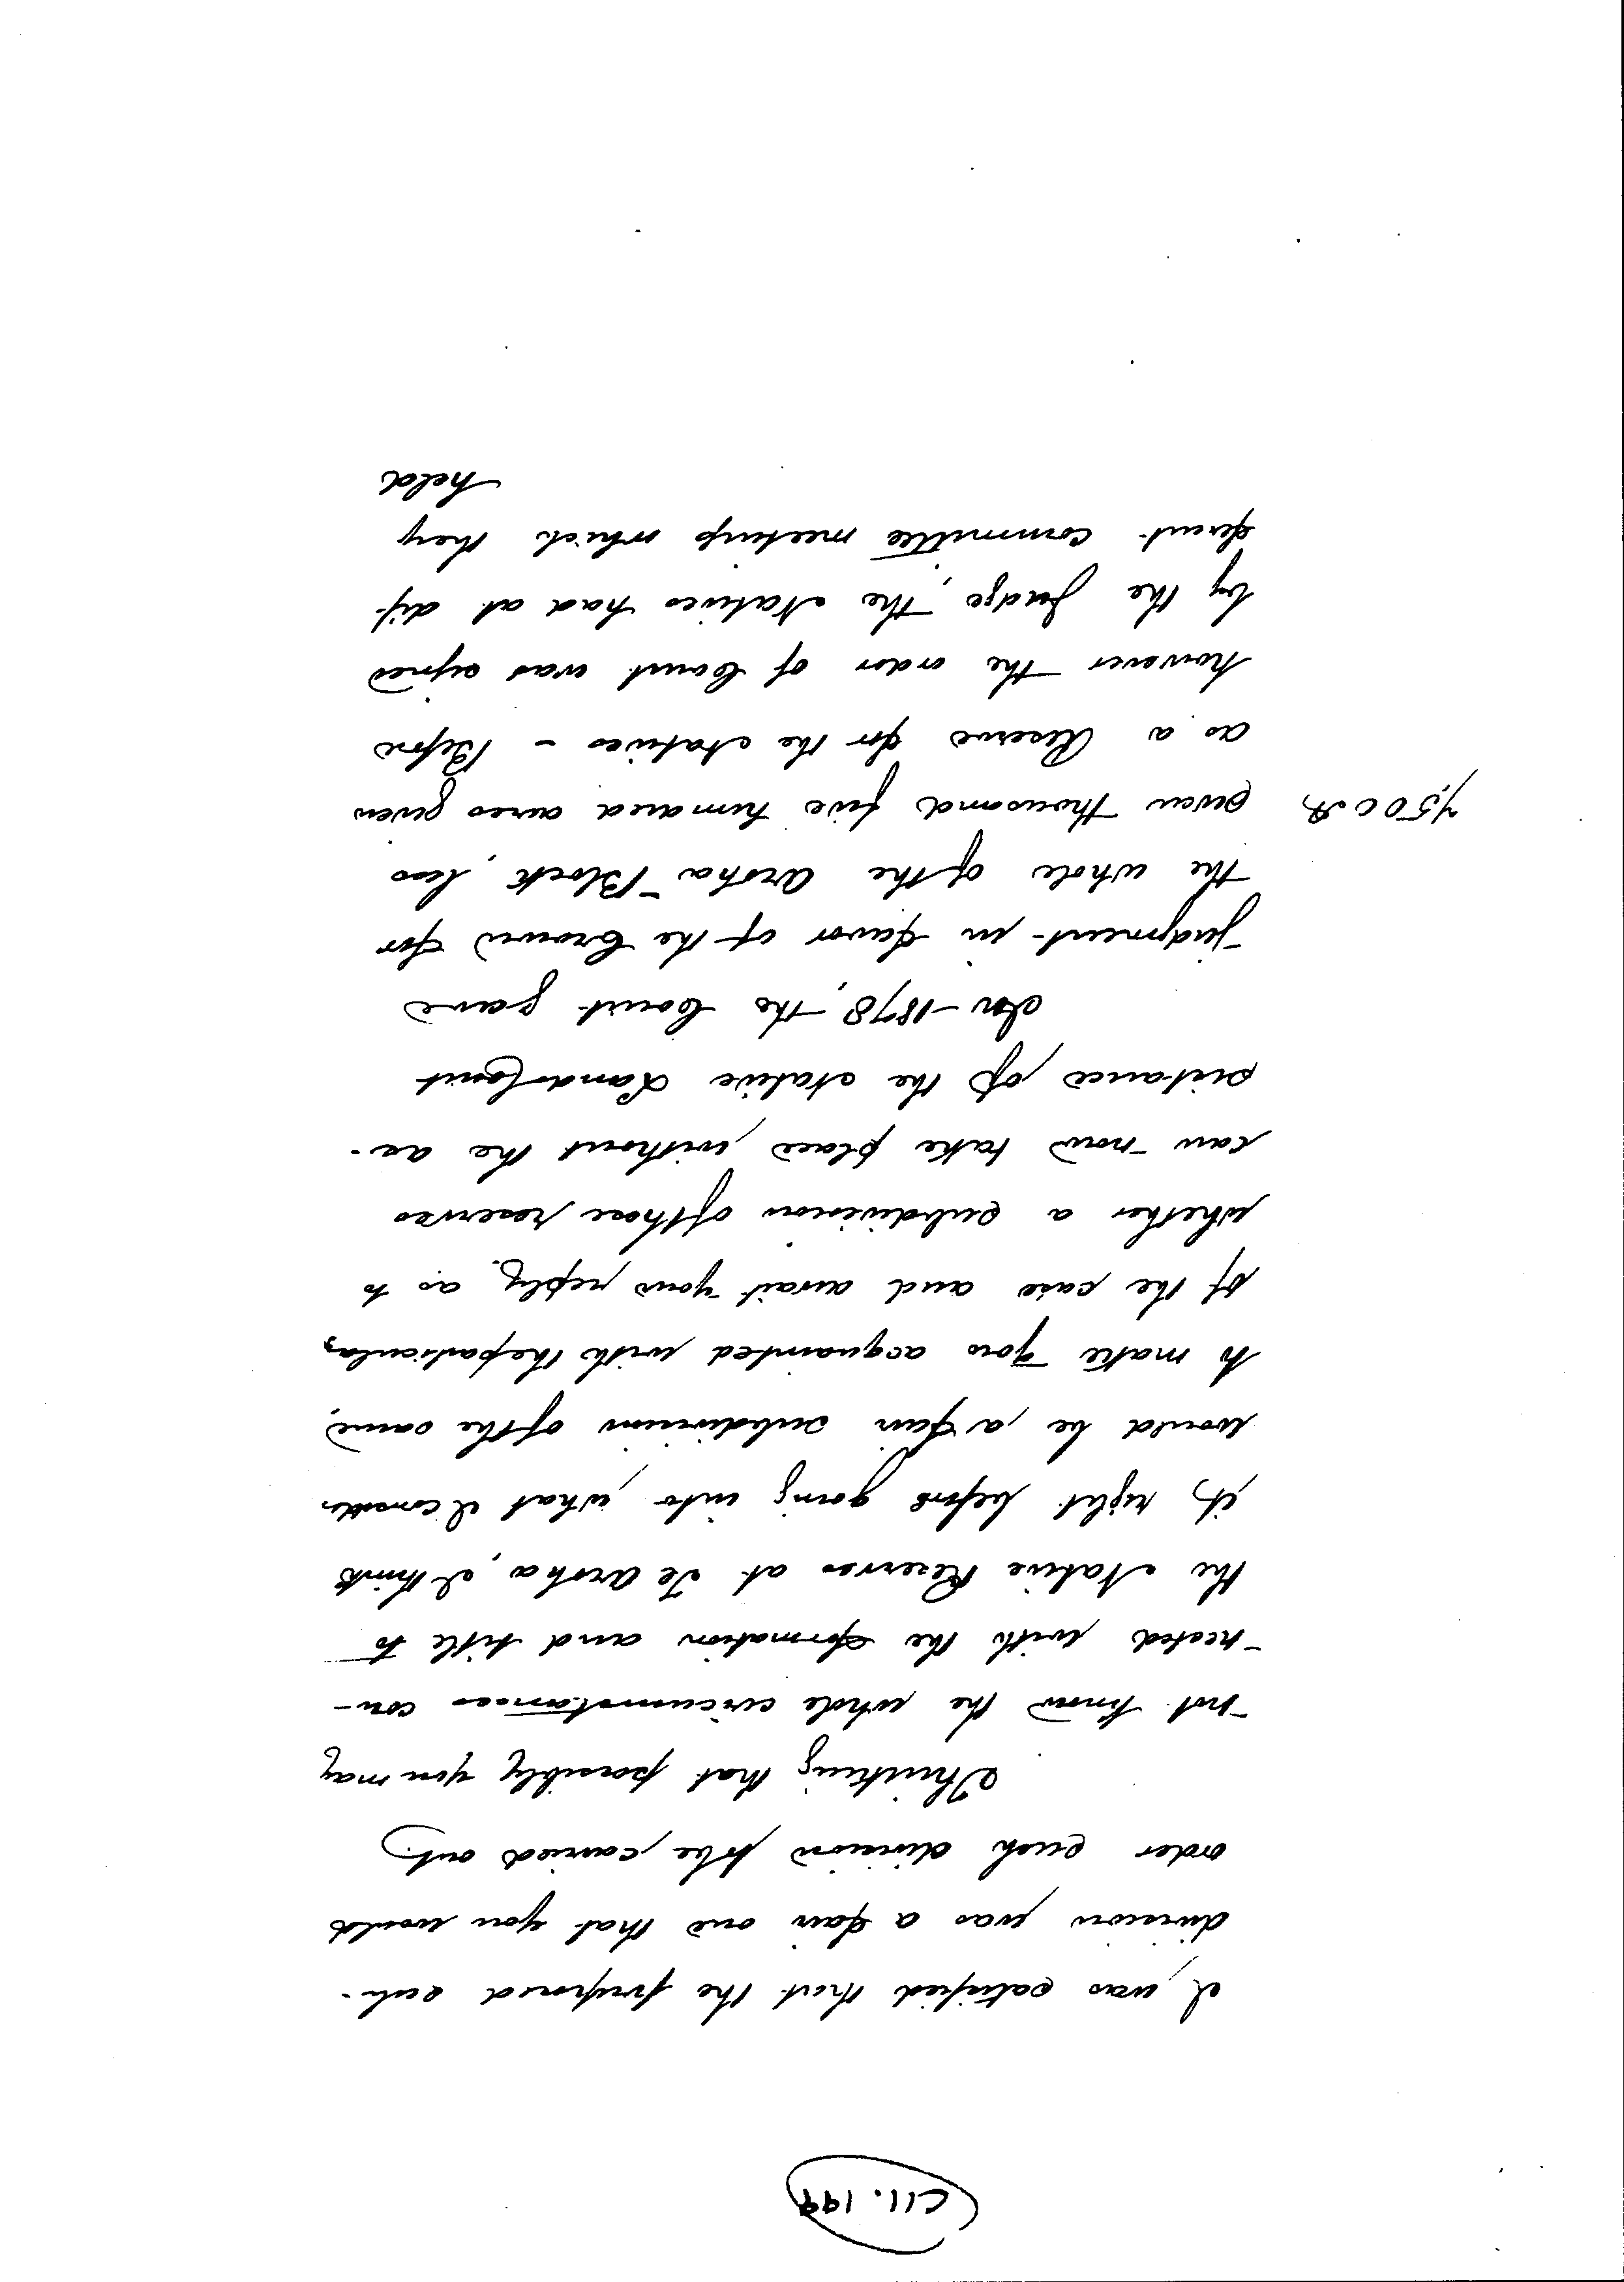 C11.199
I was satisfied that the proposed sub-
division was a fair one that you would
order such division to be carried out.
Thinking that possibly you may
not know the whole circumstances con-
nected with the formation and title to
the Native Reserves at Te Aroha, I think
it right before going into what I consider
would be a fair subdivision of the same,
to make you acquainted with the particulars
of the case and await your reply as to
whether a subdivision of those reserves
can now take place without the as-
sistance of the Native Lands Court
In 1878, the Court gave
judgment in favor of the Crown for
the whole of the Aroha Block, less
7,500 A seven thousand five hundred acres given
as a Reserve for the Natives - Before
however the order of Court was signed
by the Judge, the Natives had at dif-
ferent committee meetings which they
held